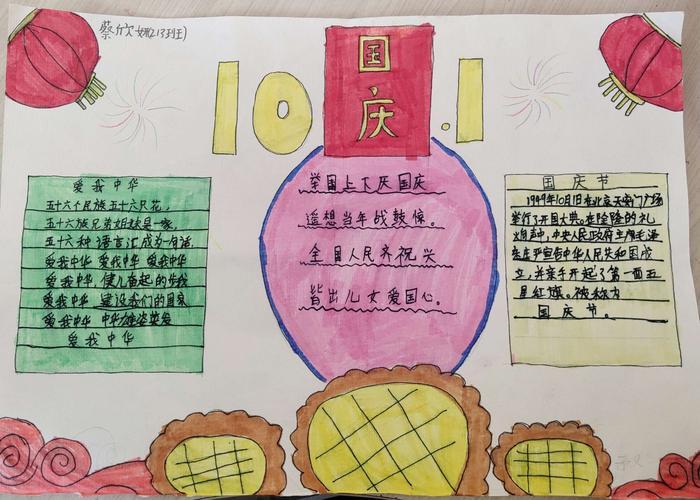 蔡欣娜(213班)
10.1
国庆
爱我中华
五十六个民族五十六只花,
五十六族兄弟姐妹是一家,
五十六种语言汇成为一句话,
爱我中华 爱我中华 爱我中华
爱我中华 健儿奋起的步我
爱我中华 建设我们的国家
爱我中华 中华雄姿英发
爱我中华
举国上下庆国庆
遥想当年战鼓
全国人民齐祝兴
皆出儿女爱国心。
国庆节
1949年10月1日在北京天安门广场
举行了开国大典。在隆隆的礼
炮声中,中央人民政府主席毛泽
东庄严宣告中华人民共和国成
立,并亲手升起了第一面五
星红旗。被称为
国庆节。